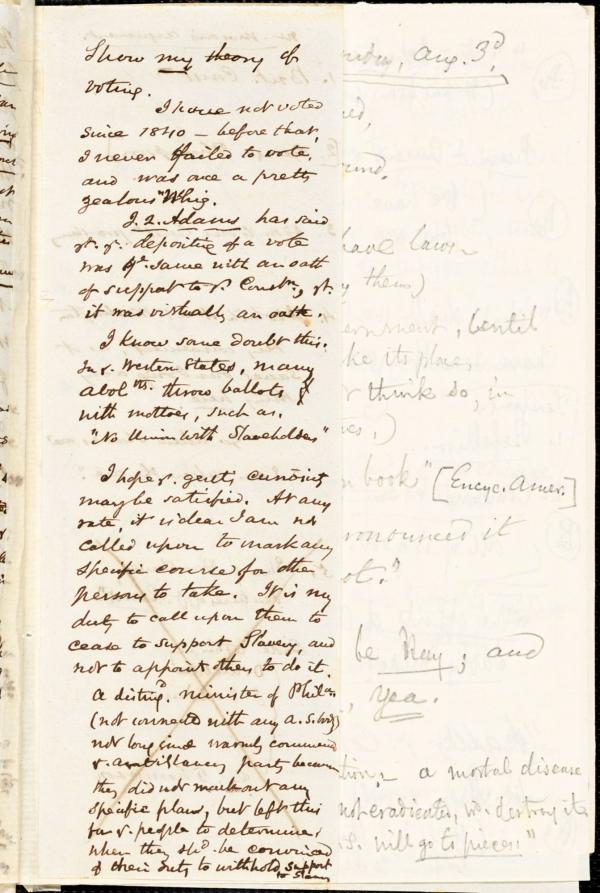 Show my theory of
voting.
I have not voted
since 1840 – before that,
I never failed to vote,
and was once a pretty
zealous "Whig.
J. Q. Adams has said
yt. ye. depositing of a vote
was ye. same with an oath
of support to ye Constn., yt.
it was virtually an oath.
I know some doubt this.
In ye. Western States, many
abolnts. throw ballots
with mottoes, such as,
"No Union with Slaveholders"
I hope ye. gent's curiosity
may be satisfied. At any
rate, it is clear I am not
called upon to mark any
specific course for other
persons to take. It is my
duty to call upon them to
cease to support Slavery, and
not to appoint others to do it.
A disting'd. minister of Phila.
(not connected with any a. s. body)
not long since warmly commended
ye. antislavery party because
they did not mark out any
specific plan, but left this
for ye. people to determine,
when they shd. be convinced
of their duty to withhold support
to Slavery
day, Aug. 3d,
have laws
them)
ernment, (until
ke its place,
think so, in
book" [Encyc. Amer.]
ronounced it
ot."
be Nay; and
yea.
tion; – a mortal disease
not eradicated, wd. destroy it
will go to pieces"